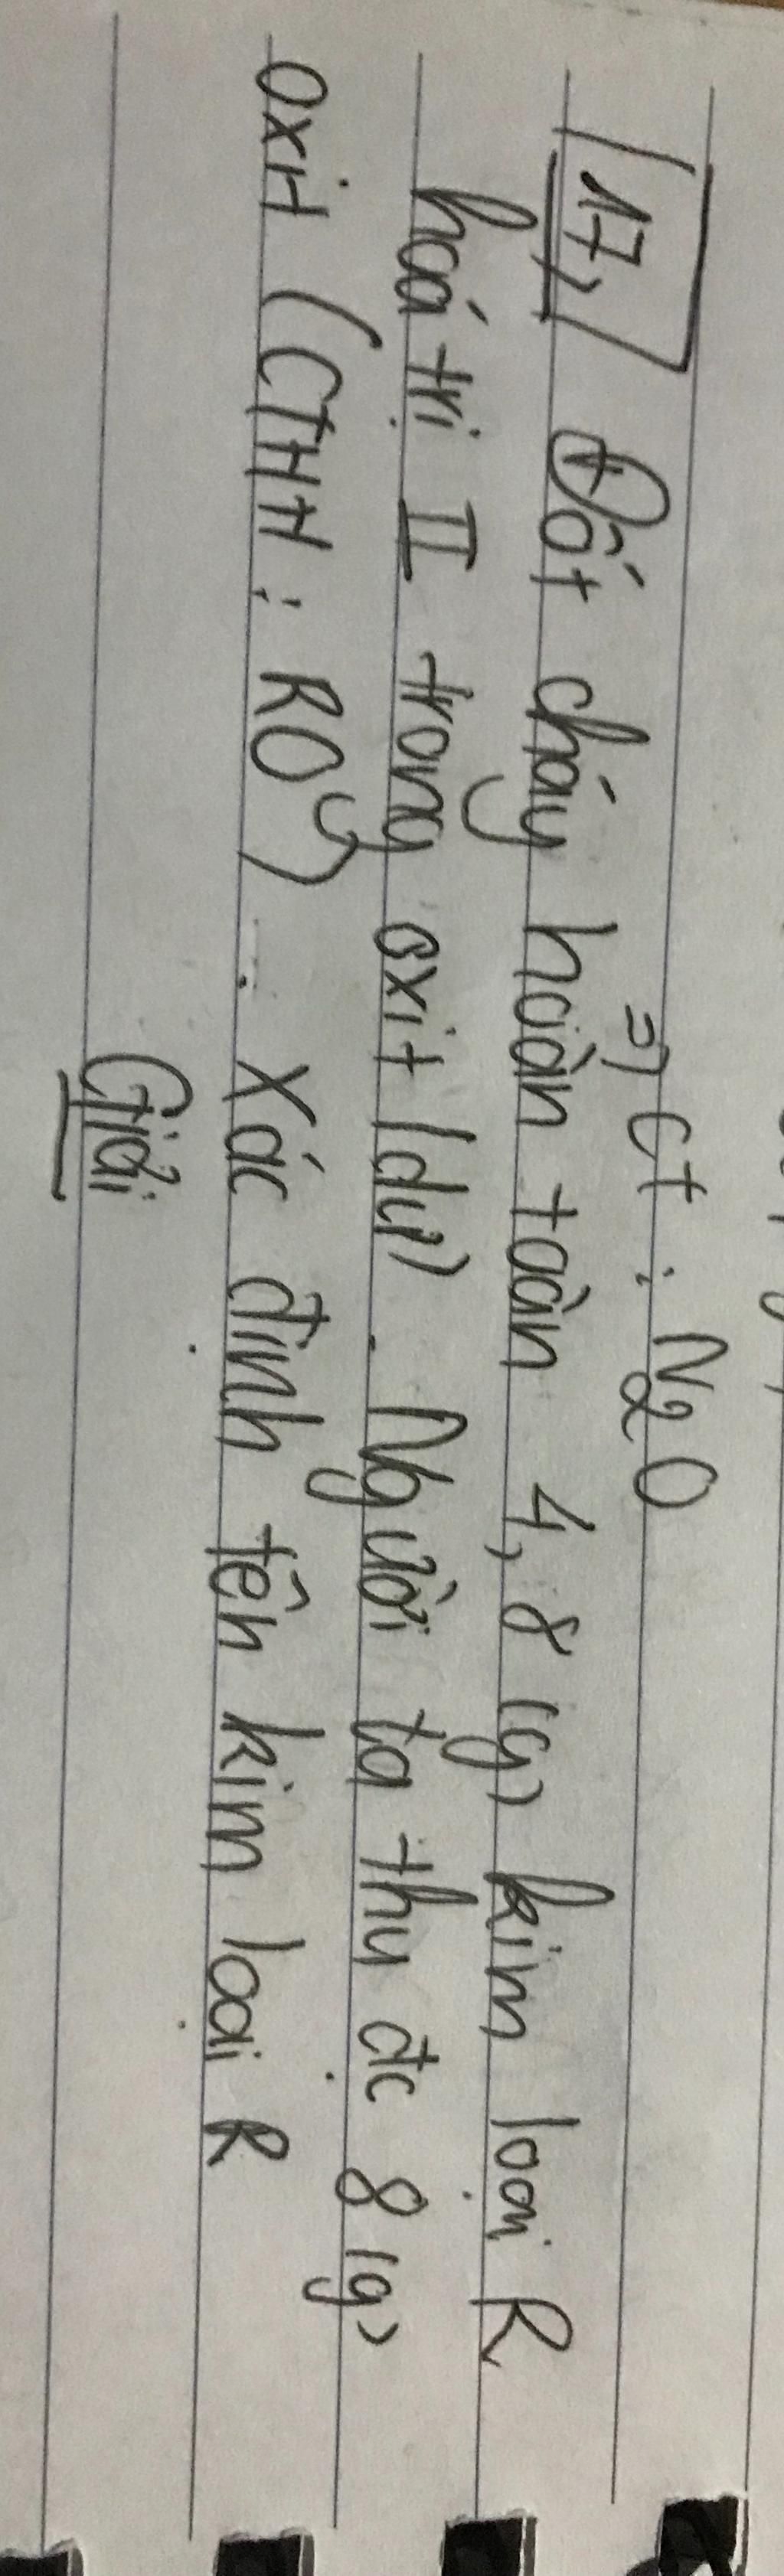 => CT : N2O
17, Đốt cháy hoàn toàn 4,8 (g) kim loại R
hoá trị II trong oxit (dư). Người ta thu đc 8 (g)
oxit (CTHH : RO). Xác định tên kim loại R
Giải